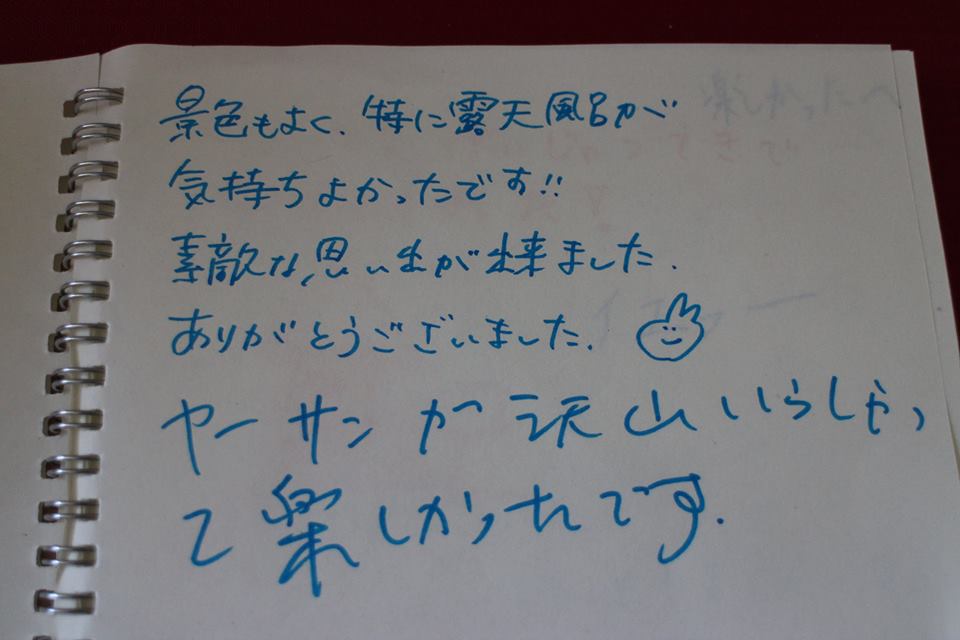 景色もよく、特に露天風呂が
気持ちよかったです!!
素敵な思い出が出来ました.
ありがとうございました.
ヤーサンが沢山いらしゃっ
て楽しかったです.